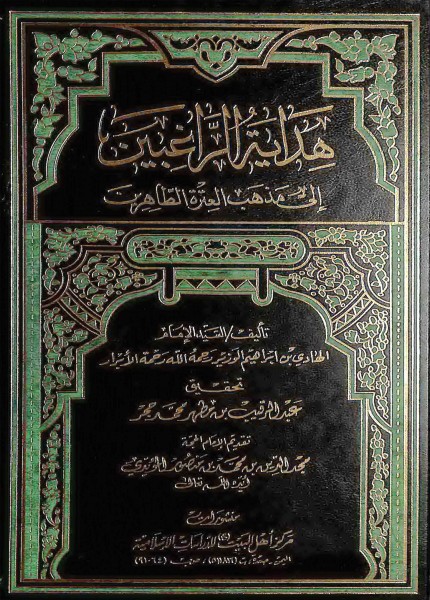 هِدَايَةُ الرَّاغِبِينَ
إلى مَذهَبِ العِترَةِ الطَّاهِرين
تأليف/السَّيد الإمَام
الهادي بن ابراهيم الوزير رحمه الله رحمة الأبرار
تحقيق
عبد الرقيب بن مطهر محمد حجر
تقديم الإمام الحجة
مجد الدين بن محمد بن منصور المؤيدي
أيده الله تعالى
منشورات
مركز أهل البيت (ع) للدراسات الإسلامية